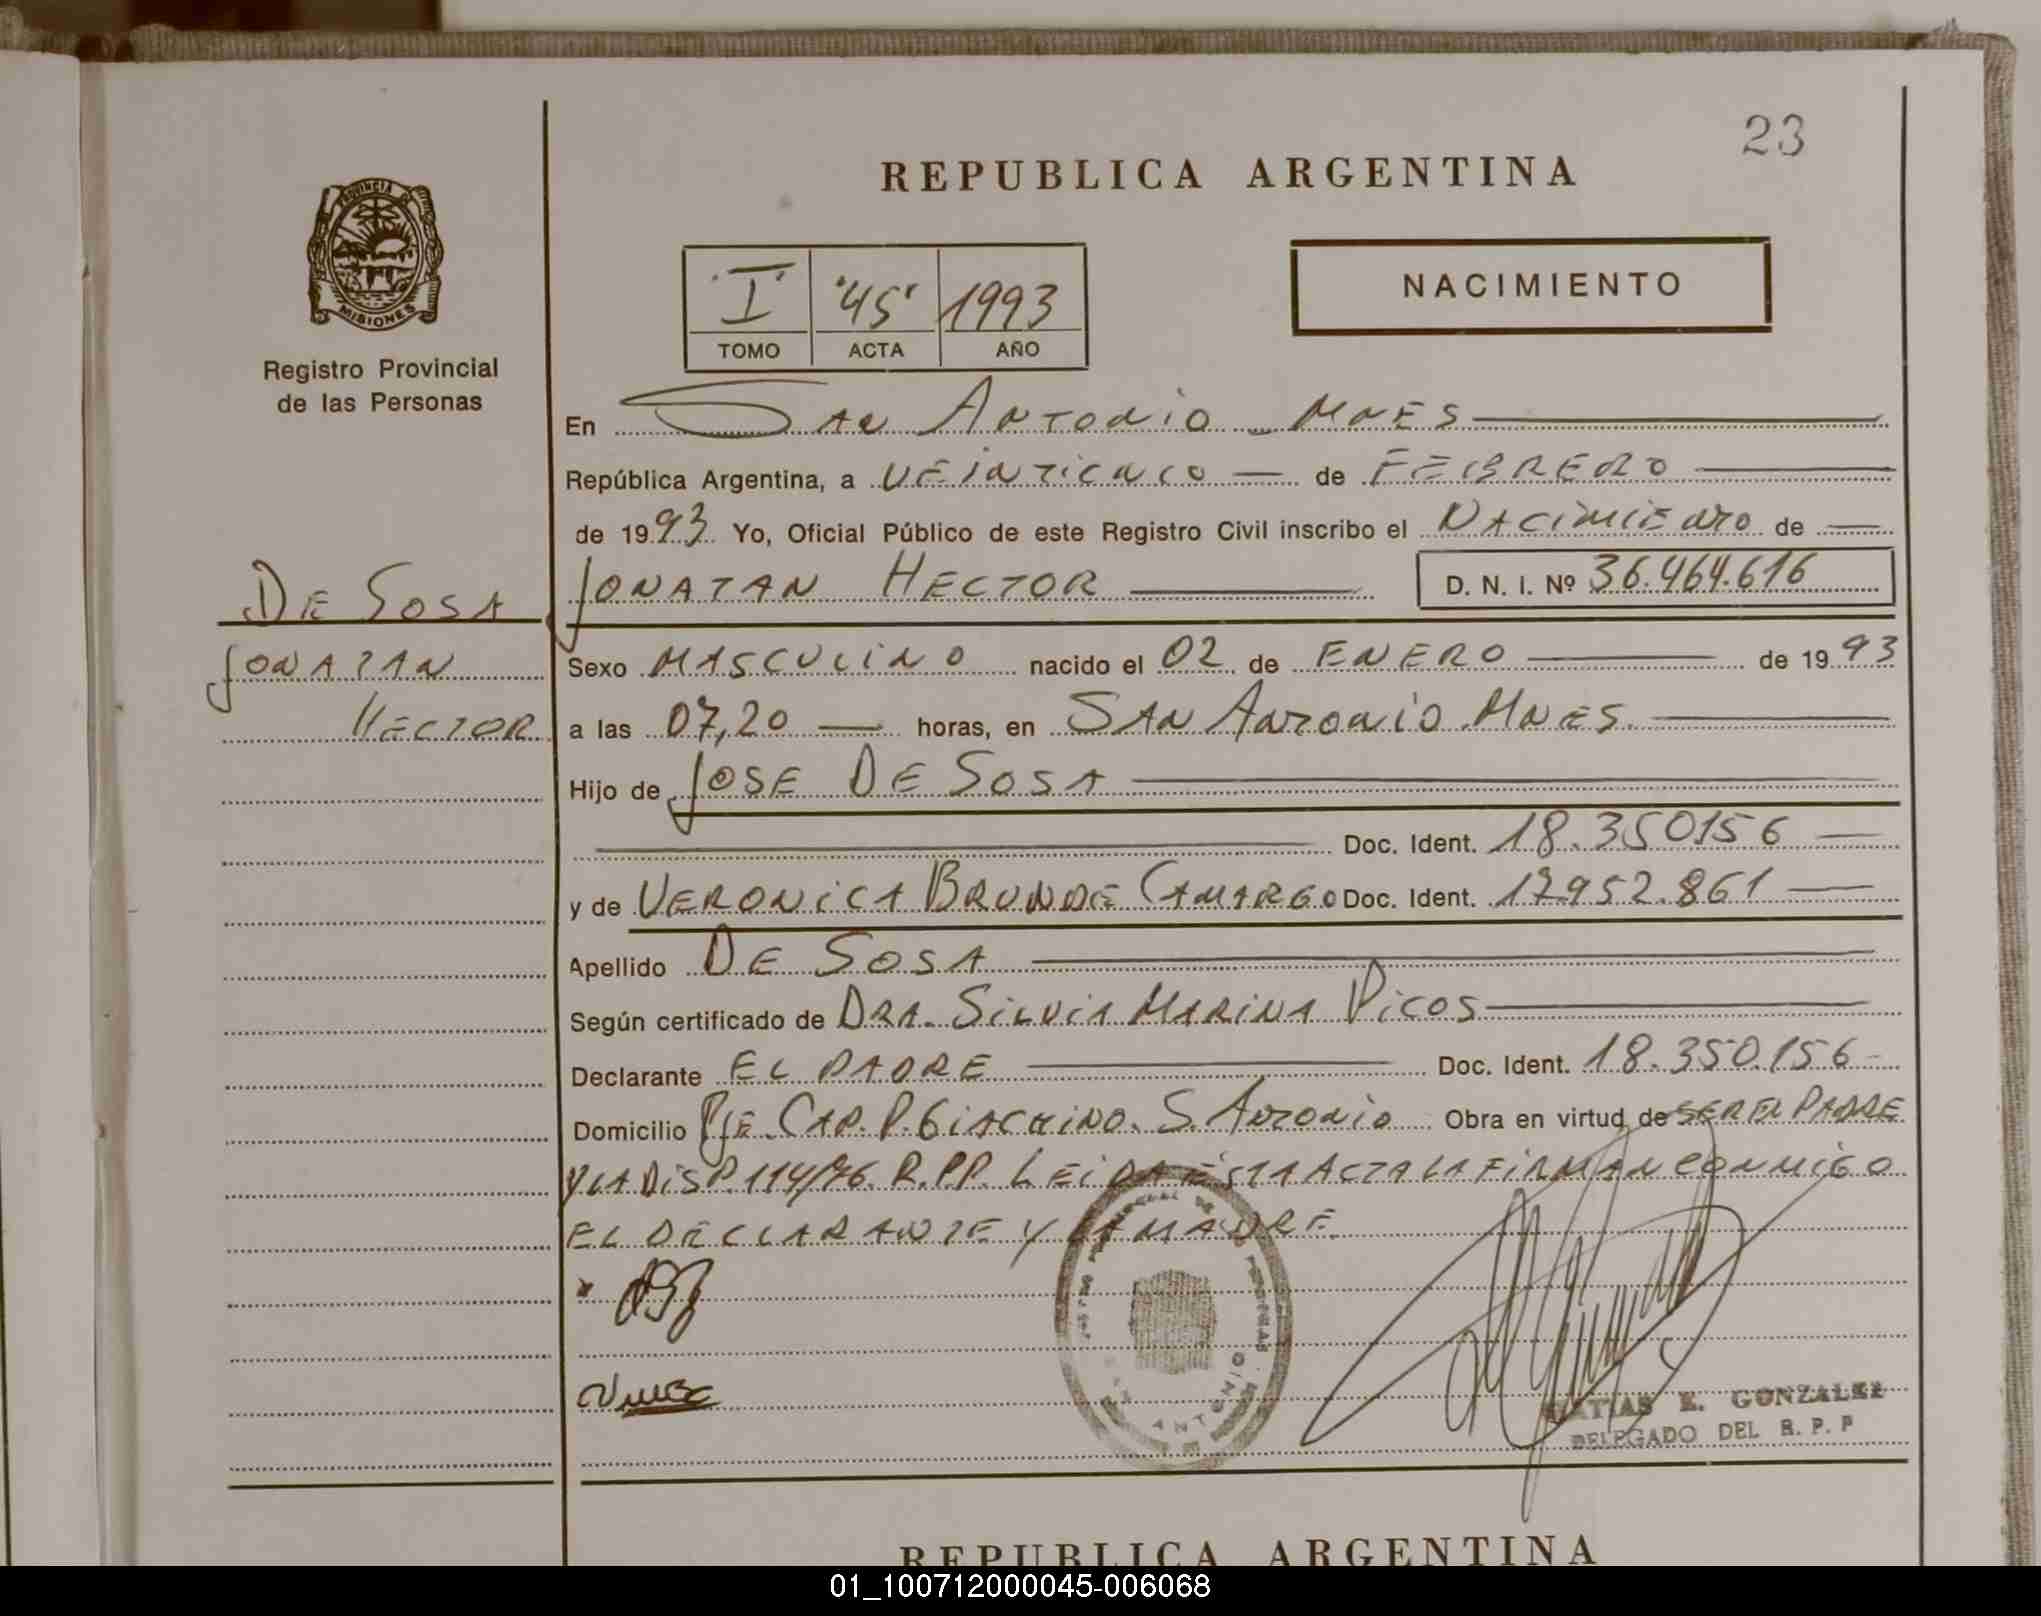 23
REPUBLICA ARGENTINA
PROVINCIA DE
MISIONES
Registro Provincial
de las Personas
"I" "45" 1993
TOMO ACTA AÑO
NACIMIENTO
En SAN ANTONIO - MNES
República Argentina, a VEINTICNCO de FEBRERO
de 1993 Yo, Oficial Público de este Registro Civil inscribo el NACIMIENTO de
DE SOSA
JONATAN HECTOR D. N. I. Nº 36.464.616
JONATAN
HECTOR
Sexo MASCULINO nacido el 02 de ENERO de 1993
a las 07,20 horas, en SAN ANTONIO MNES.
Hijo de JOSE DE SOSA
Doc. Ident. 18.350156
y de VERONICA BRUN DE CAMARGO Doc. Ident. 17.952.861
Apellido DE SOSA
Según certificado de DRA. SILVIA MARINA PICOS
Declarante EL PADRE Doc. Ident. 18.350.156
Domicilio PJE. CAP. P. GIACHINO. S. ANTONIO Obra en virtud de SER EL PADRE
Y LA DISP. 114/76. R.P.P. LEIDA ESTA ACTA LA FIRMAN CONMIGO
EL DECLARANTE Y LA MADRE.
MATIAS E. GONZALEZ
DELEGADO DEL R. P. P
REPUBLICA ARGENTINA
01_100712000045-006068